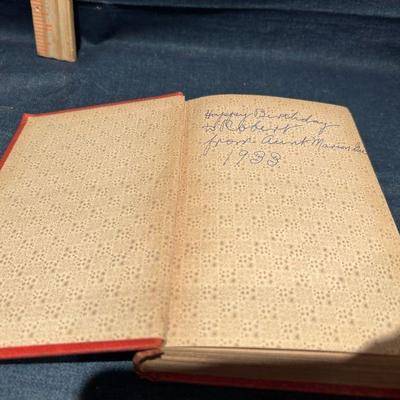 Happy Birthday
to Robert
from Aunt Marion
1933